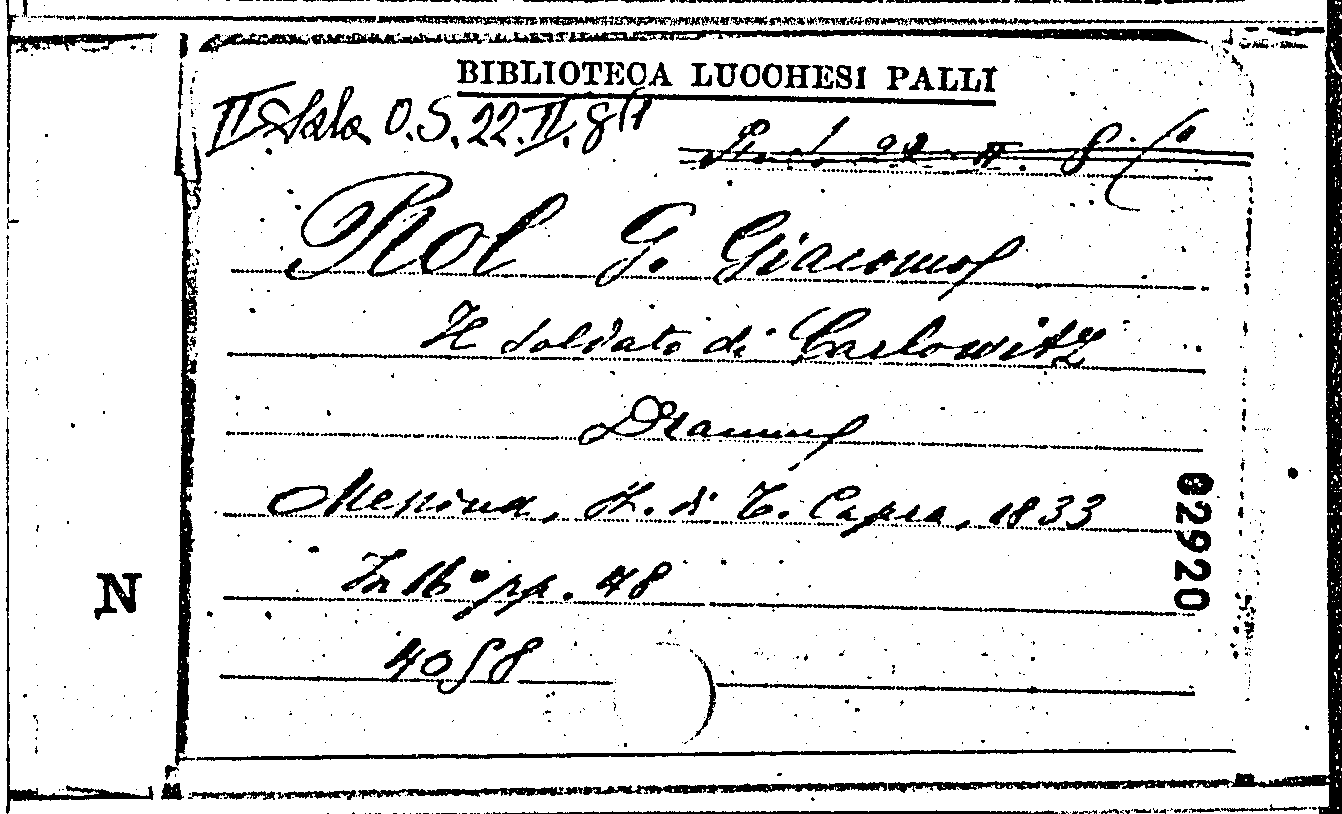 BIBLIOTECA LUCCHESI PALLI
II Sala O.S. 22. II. 8(1
22 II. 8.
Rol G. Giacomo
Il soldato di Carlowitz
Dramma
Messina, T. di T. Capra, 1833
In 16° pp. 48
4058
82920
N